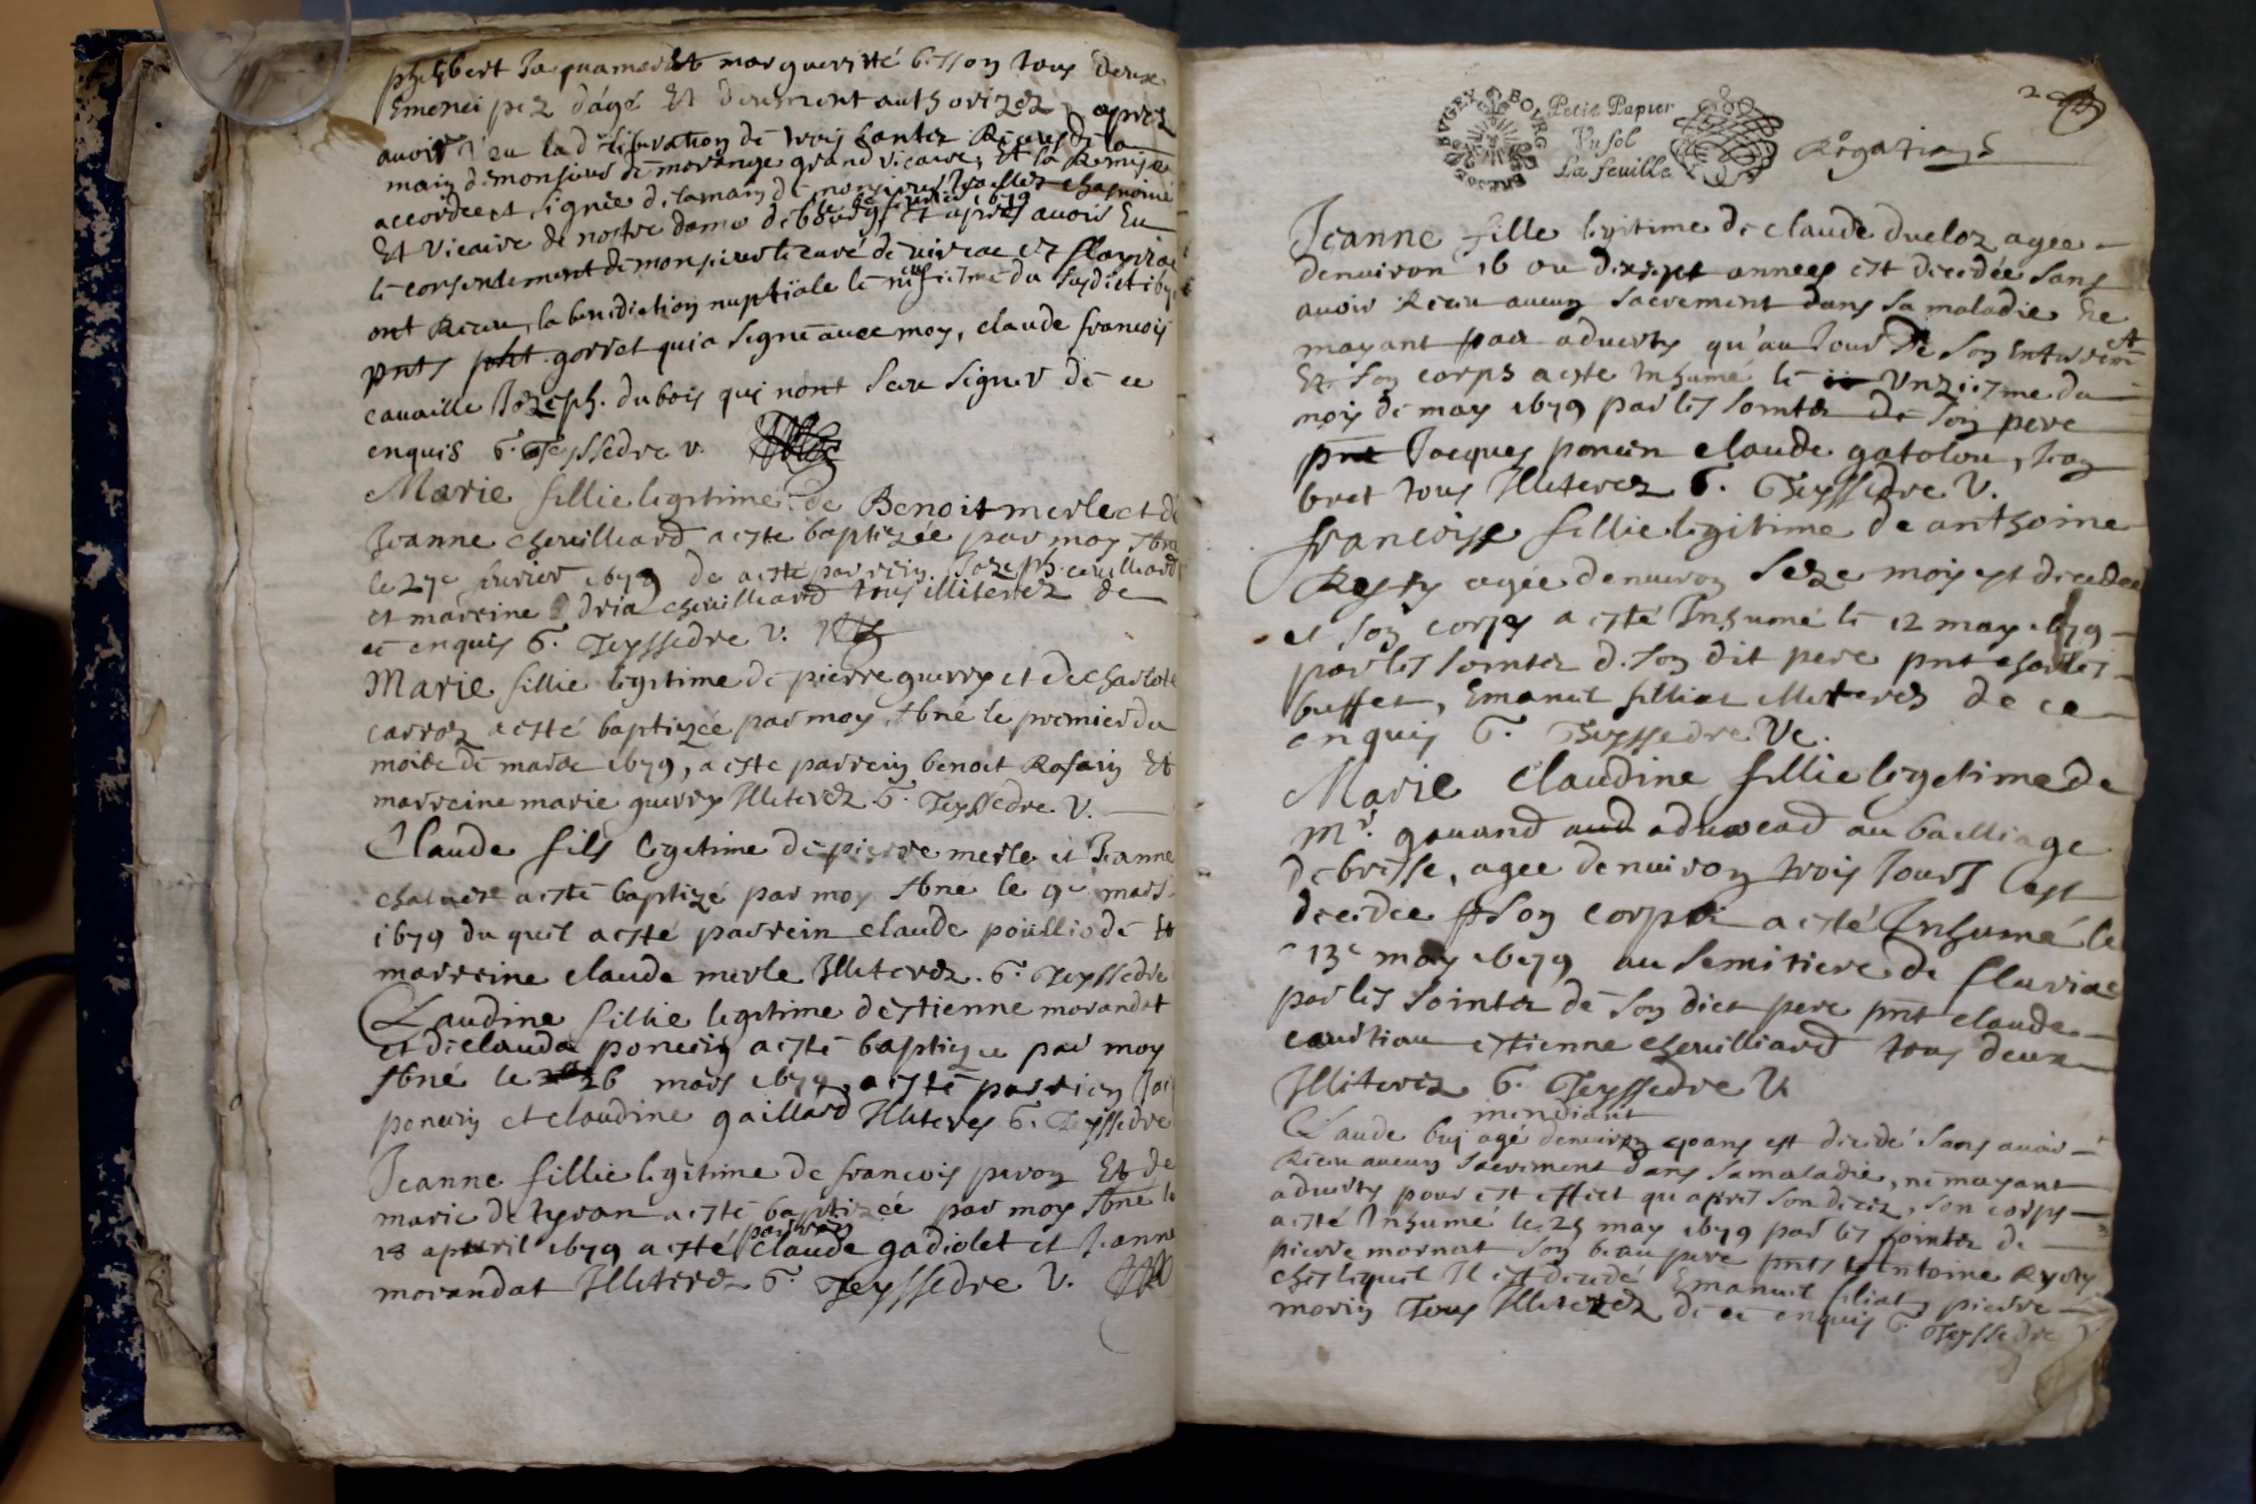 philibert Jaquamard Et margueritté bisson tous deux
Emenci pez dagé Et deuement authorizez apres
avoir veu la d de trois bantz
main de monsieur de morange grand vicaire, Et la Remise
accordee et signée de la main de monsieur chanoine
le fevrier 1679
Et vicaire de nostre dame de bourg, et apres avoir Eu
le consentement de monsieur le curé de viriac et flaviac
ont Receu la benediction nuptiale le du susdict
pnts gorret qui a signé avec moy, claude francois
cavaille Joseph dubois qui nont sceu signer de ce
enquis G. Teyssedre v.
Marie fillie legitime de Benoit merle et de
Jeanne cheuilliard a esté baptizée par moy sbné
le 27e fevrier 1679 de a esté parrein Joseph cheuilliard
et marrine dria cheuilliard tous illiterez de
ce enquis G. Teyssedre V.
Marie fillie legitime de pierre guerry et de charlote
carroz a esté baptizée par moy sbné le premier du
mois de mars 1679, a esté parrein benoit Rosain Et
marreine marie guerry Illiterez G. Teyssedre V.
Claude fils legitime de pierre merle et Jeanne
a esté baptizé par moy sbné le 9e mars
1679 du quel a esté parrein claude poulliode Et
marreine claude merle Illiterez. G. Teyssedre
Claudine fillie legitime destienne morandat
et de clauda poncin a esté baptizee par moy
sbné le 26 mars 1679, a esté parrien
poncin et claudine gaillard Illiteres G. Teyssedre
Jeanne fillie legitime de francois peron Et de
marie de tyran a esté baptizeé par moy sbné le
parrein
18 apvril 1679 a esté claude gadiolet et Jeanne
morandat Illiterez G. Teyssedre V.
2
BVGEX BOVRG
Petit Papier
Vn sol
La feuille
Rogations
Jeanne fille legitime de claude ducloz agee
denuiron 16 ou dixsept annees est decedée sans
auoir Receu aucun sacrement dans sa maladie Ne
mayant pas aduerty qu'au Jour de son Enterremt
Et son corps a esté Inhumé le unziesme du
mois de may 1679 par les sointz de son pere
pnt Jacques poncin claude gatolou, Jean
bret tous Illiterez G. Teyssedre V.
francoise fillie legitime de anthoine
Resty agée denuiron seze mois est decedee
et son corps a esté Inhumé le 12 may 1679
par les sointz de son dit pere pnt charles
buffet, Emanuel filliat Illiterez de ce
enquis G. Teyssedre Ve.
Marie Claudine fillie legetime de
Mr. gouand aduocad au bailliage
de bresse, agee denuiron trois Jours est
decedee son corps a esté Inhumé le
13e may 1679 au semitiere de fluriac
par les sointz de son dict pere pnt claude
estienne cheuilliard tous deux
Illiterez G. Teyssedre V.
mendiant
Claude buj agé denuiron 40 ans est decedé sans auoir
Receu aucun sacrement dans sa maladie, ne mayant
aduerty pour cest effect qu apres son decez, son corps
a esté Inhumé le 25 may 1679 par les sointz de
pierre mornat son beau pere pnts Antoine Resty
chez lequel Il est decedé Emanuel filiat, pierre
morin Tous Illiterez de ce enquis G. Teyssedre